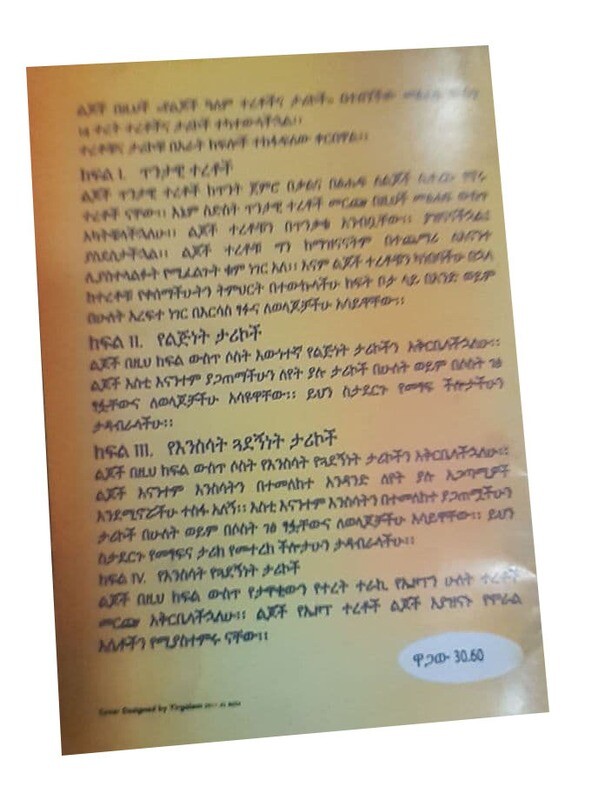 ልጆች በዚህች «የልጆች ዓለም ተረቶችና ታሪኮች» በተሰኘችው መፅሐፍ ውስጥ
14 ተረት ተረቶችና ታሪኮች ተካተውላችኋል።
ተረቶቹና ታሪኮቹ በአራት ክፍሎች ተከፋፍለው ቀርበዋል።
ክፍል I. ጥንታዊ ተረቶች
ልጆች ጥንታዊ ተረቶች ከጥንት ጀምሮ በቃልና በፅሑፍ ለልጆች ሲተረኩ የኖሩ
ተረቶች ናቸው። እኔም ስድስት ጥንታዊ ተረቶች መርጬ በዚህች መፅሐፍ ውስጥ
አካትቼላችኋለሁ። ልጆች ተረቶቹን በጥንቃቄ አንብቧቸው። ያዝናኗችኋል፤
ያስደስታችኋል። ልጆች ተረቶቹ ግን ከማዝናናትም በተጨማሪ ለእናንተ
ሊያስተላልፉት የሚፈልጉት ቁም ነገር አለ። እናም ልጆች ተረቶቹን ካነበባችሁ በኋላ
ከተረቶቹ የቀሰማችሁትን ትምህርት በተውኩላችሁ ክፍት ቦታ ላይ በአንድ ወይም
በሁለት አረፍተ ነገር በእርሳስ ፃፉና ለወላጆቻችሁ አሳይዋቸው።
ክፍል II. የልጅነት ታሪኮች
ልጆች በዚህ ክፍል ውስጥ ሶስት እውነተኛ የልጅነት ታሪኮችን አቅርቤላችኋለሁ።
ልጆች እስቲ እናንተም ያጋጠማችሁን ለየት ያሉ ታሪኮች በሁለት ወይም በሶስት ገፅ
ፃፏቸውና ለወላጆቻችሁ አሳዩዋቸው። ይህን ስታደርጉ የመፃፍ ችሎታችሁን
ታዳብራላችሁ።
ክፍል III. የእንስሳት ጓደኝነት ታሪኮች
ልጆች በዚህ ክፍል ውስጥ ሶስት የእንስሳት የጓደኝነት ታሪኮችን አቅርቤላችኋለሁ።
ልጆች እናንተም እንስሳትን በተመለከተ አንዳንድ ለየት ያሉ አጋጣሚዎች
እንደሚኖሯችሁ ተስፋ አለኝ። እስቲ እናንተም እንስሳትን በተመለከተ ያጋጠሟችሁን
ታሪኮች በሁለት ወይም በሶስት ገፅ ፃፏቸውና ለወላጆቻችሁ አሳይዋቸው። ይህን
ስታደርጉ የመፃፍና ታሪክ የመተረክ ችሎታሁን ታዳብራላችሁ።
ክፍል IV. የእንስሳት የጓደኝነት ታሪኮች
ልጆች በዚህ ክፍል ውስጥ የታዋቂውን የተረት ተራኪ የኤዞፕን ሁለት ተረቶች
መርጬ አቅርቤላችኋለሁ። ልጆች የኤዞፕ ተረቶች ልጆች እያዝናኑ የሞራል
እሴቶችን የሚያስተምሩ ናቸው።
ዋጋው 30.60
Cover Designed by Yirgalem